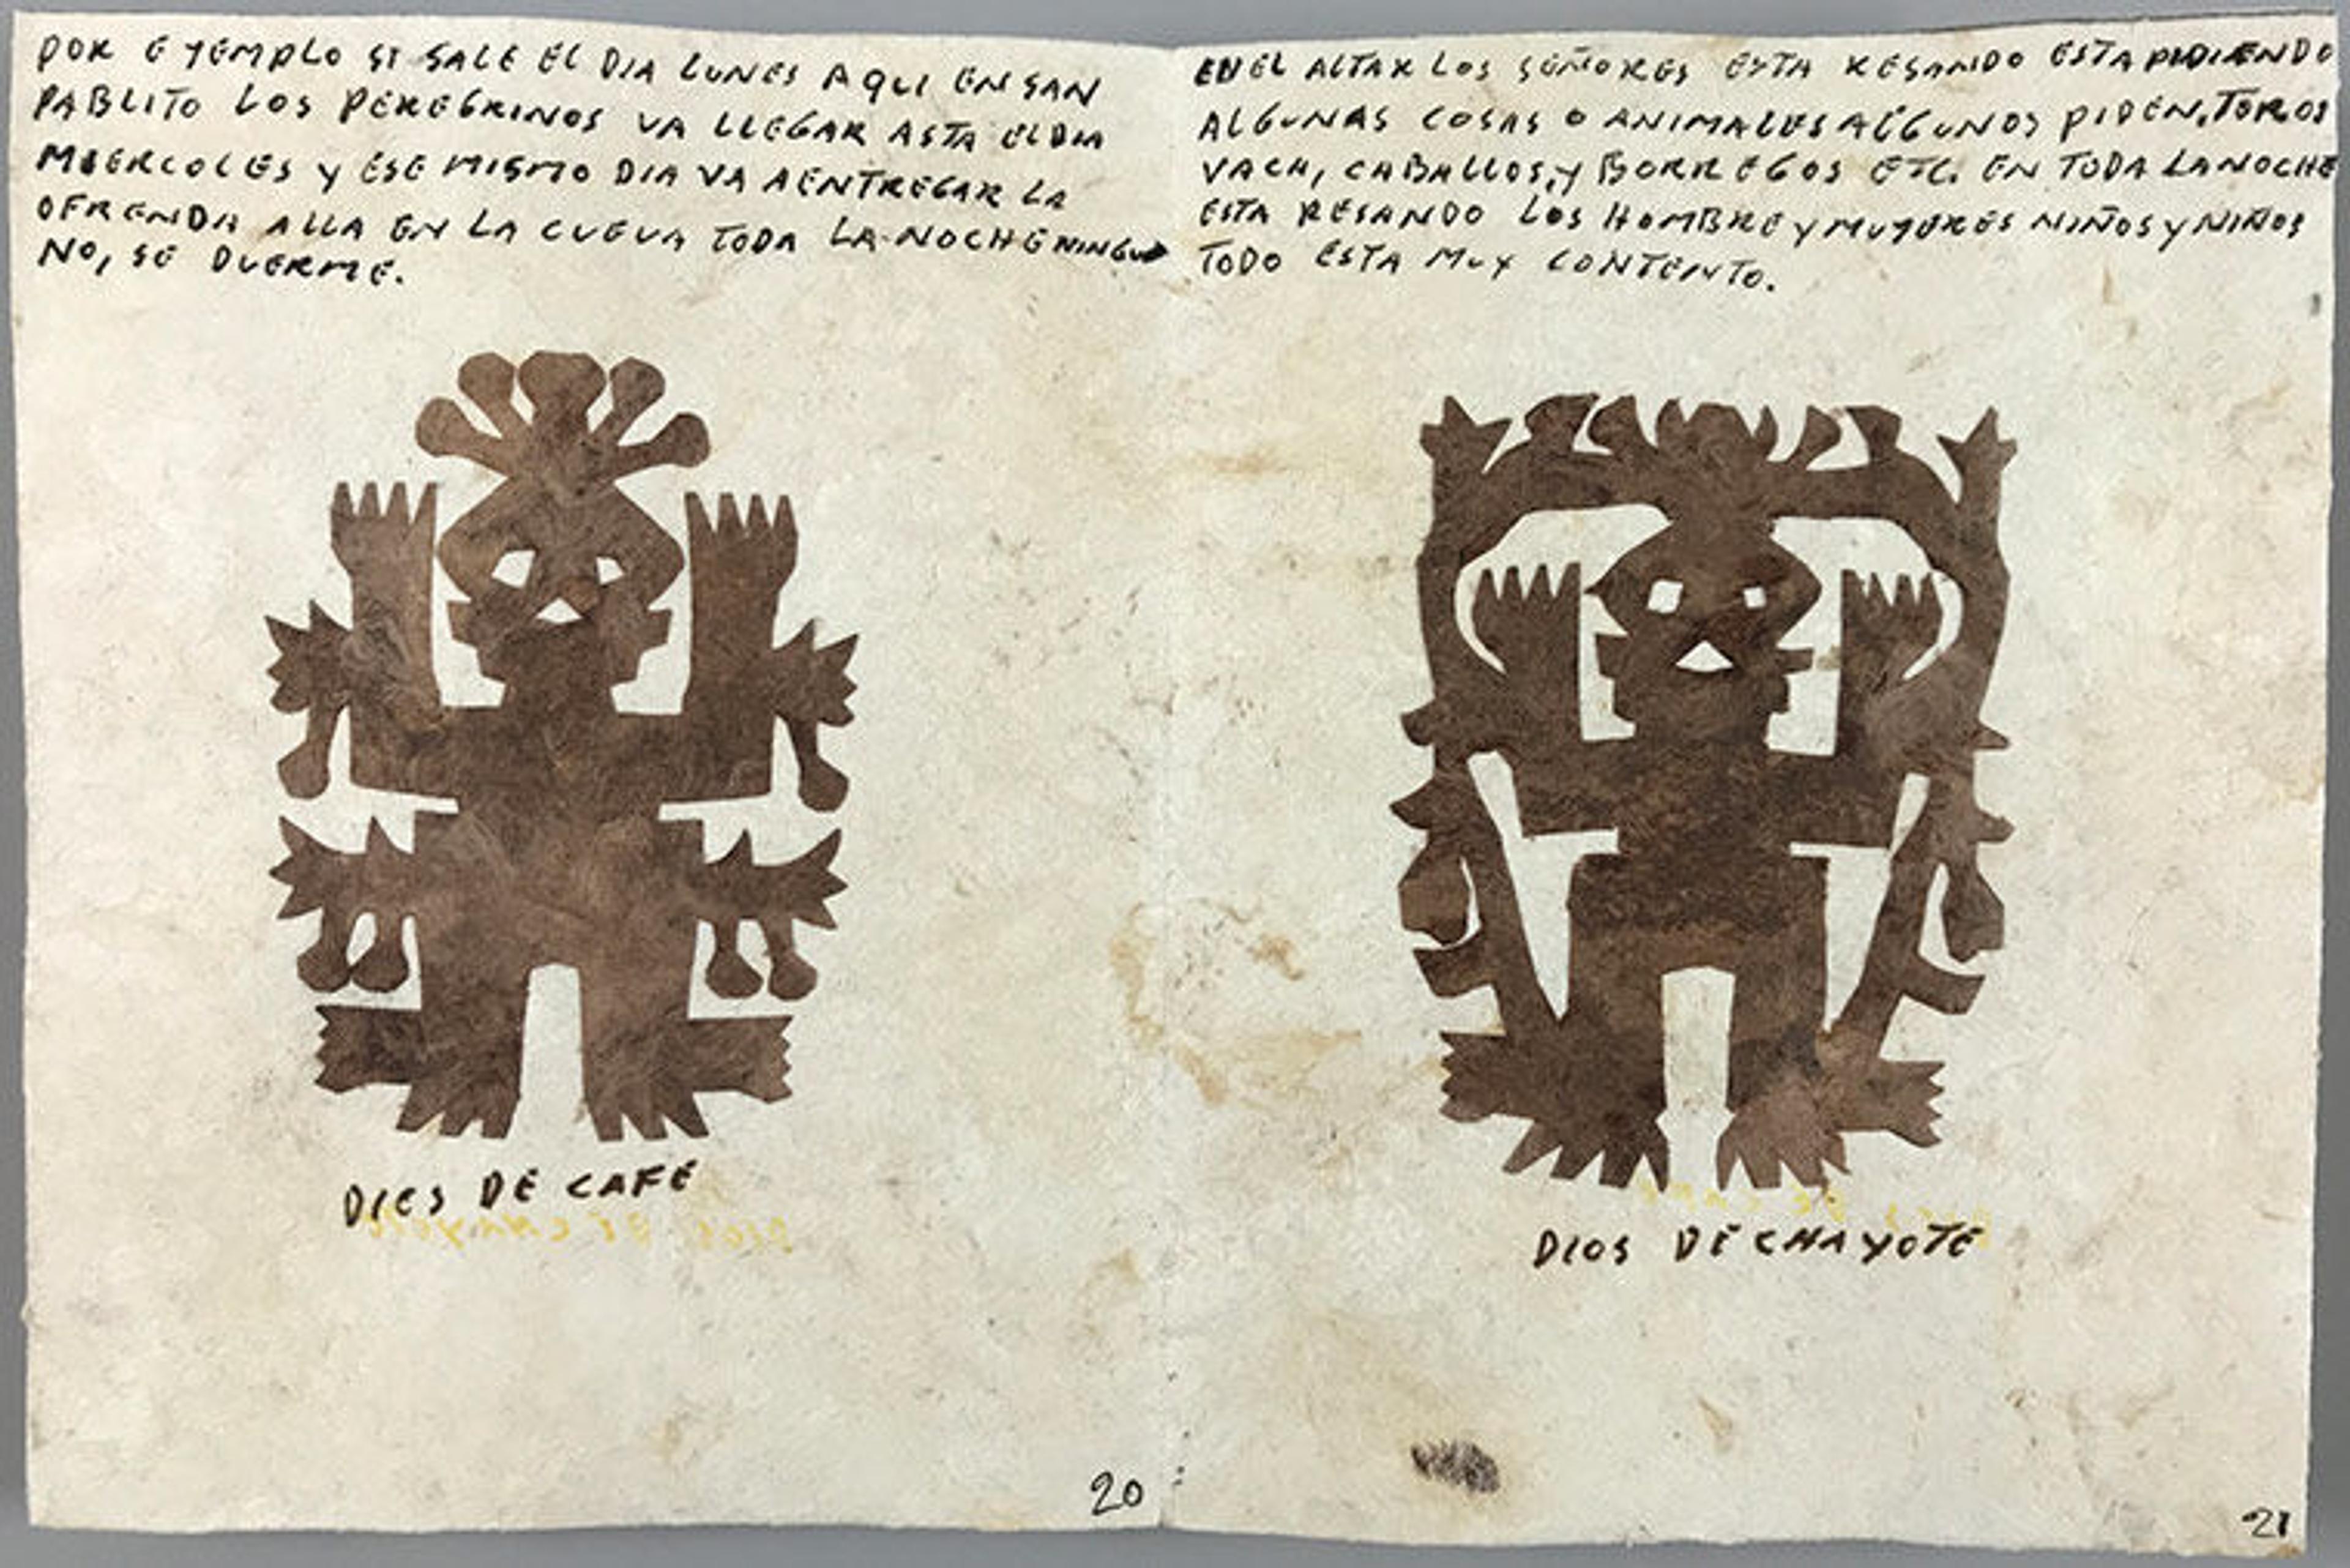 POR EYEMPLO SI SALE EL DIA LUNES AQUI EN SAN
PABLITO LOS PEREGRINOS VA LLEGAR ASTA EL DIA
MIERCOLES Y ESE MISMO DIA VA AENTREGAR LA
OFRENDA ALLA EN LA CUEVA TODA LA NOCHE NINGU
NO, SE DUERME.
DIES DE CAFE
20
EN EL ALTAR LOS SEÑORES ESTA RESANDO ESTA PIDIENDO
ALGUNAS COSAS O ANIMALES ALGUNOS PIDEN, TOROS
VACA, CABALLOS, Y BORREGOS ETC. EN TODA LA NOCHE
ESTA RESANDO LOS HOMBRE Y MUYERES NIÑOS Y NIÑOS
TODO ESTA MUY CONTENTO.
DIOS DE CHAYOTE
21